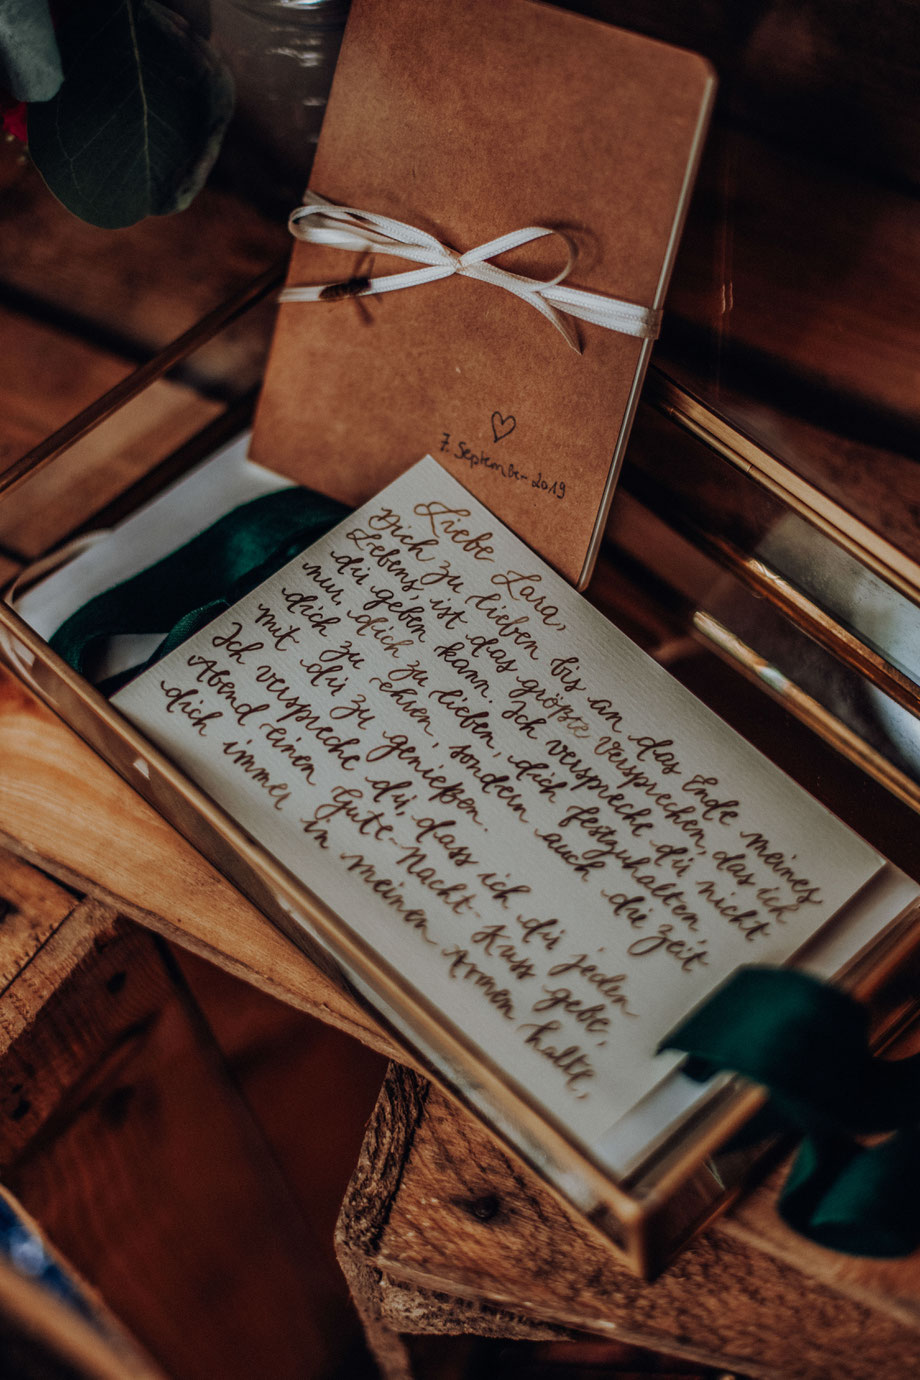 7. September 2019
Liebe Lara,
Dich zu lieben bis an das Ende meines
Lebens, ist das größte Versprechen, das ich
dir geben kann. Ich verspreche dir nicht
nur, dich zu lieben, dich festzuhalten
dich zu ehren, sondern auch die Zeit
mit dir zu genießen.
Ich verspreche dir, dass ich dir jeden
Abend einen Gute-Nacht-Kuss gebe,
dich immer in meinen Armen halte,